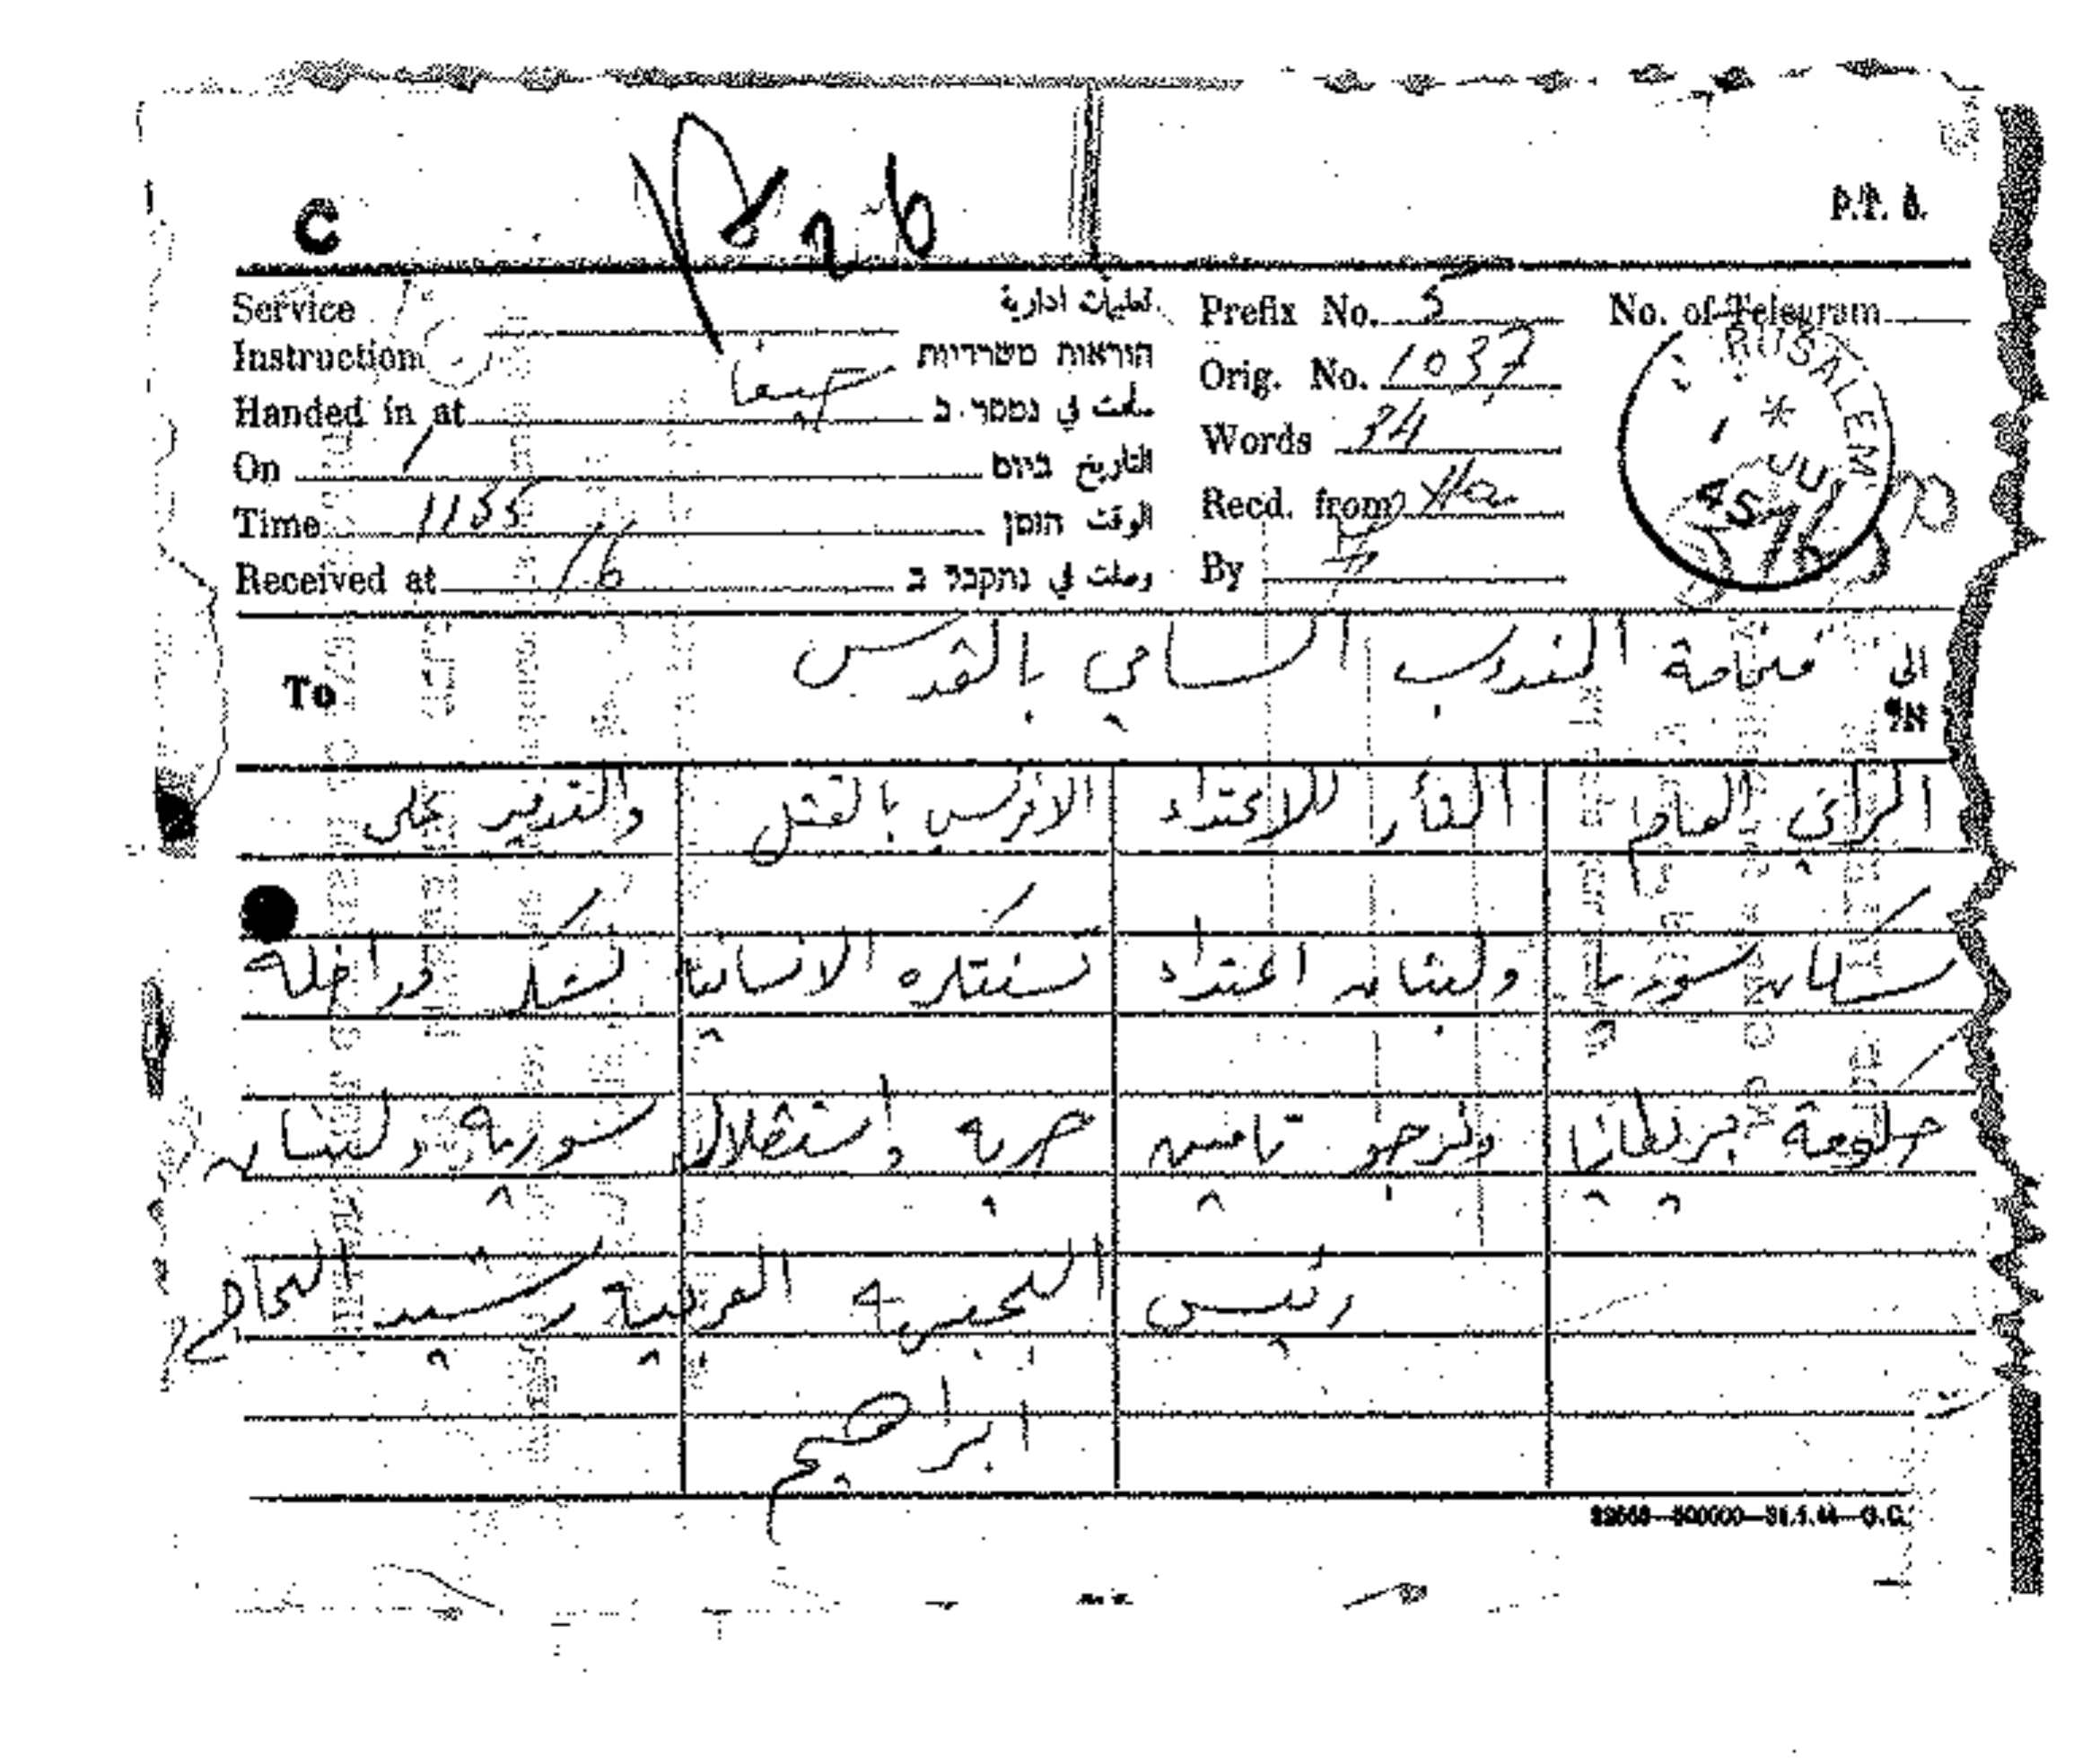 826
C
P.T. 6.
Service تعليمات ادارية
Instruction הוראות משרדיות
Handed in at حيفا سلمت في נמסר ב
On 1 التاريخ ביום
Time 1155 الوقت הזמן
Received at 16 وصلت في נתקבל ב
Prefix No. 5
Orig. No. 1037
Words 34
Recd. from Ha
By
No. of Telegram
JERUSALEM
1 JU
45
To فخامة المندوب السامي بالقدس الى
אל
الرأي العام الثائر للاعتداء الافرنسي بالقتل والتدمير على
سكان سوريا ولبنان اعتداء تستنكره الانسانية لنشكر مداخلة
حكومة بريطانيا ونرجو تامين حرية واستقلال سورية ولبنان
رئيس اللجنة العربية رشيد الحاج
ابراهيم
32568—300000—31.1.44—G.C.